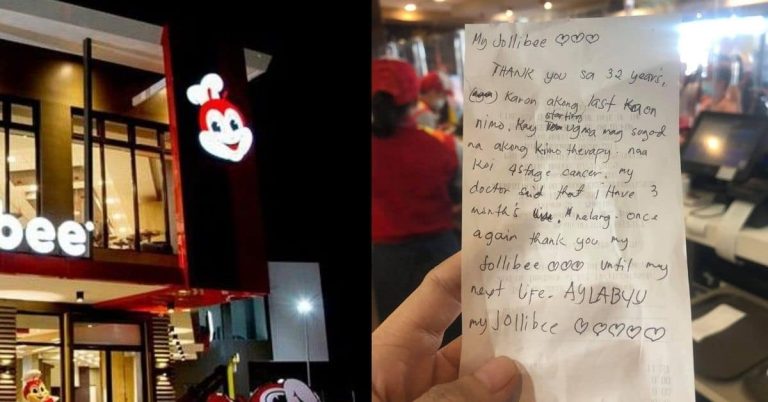 bee
My Jollibee ♡♡♡
THANK you sa 32 years,
Karon akong last kaon
starting
nimo. Kay ugma mag sugod
na akong kimo therapy. naa
koi 4stage cancer. my
doctor said that I Have 3
month's nalang. once
again thank you my
Jollibee ♡♡♡ until my
next life. AYLABYU
my Jollibee ♡♡♡♡♡